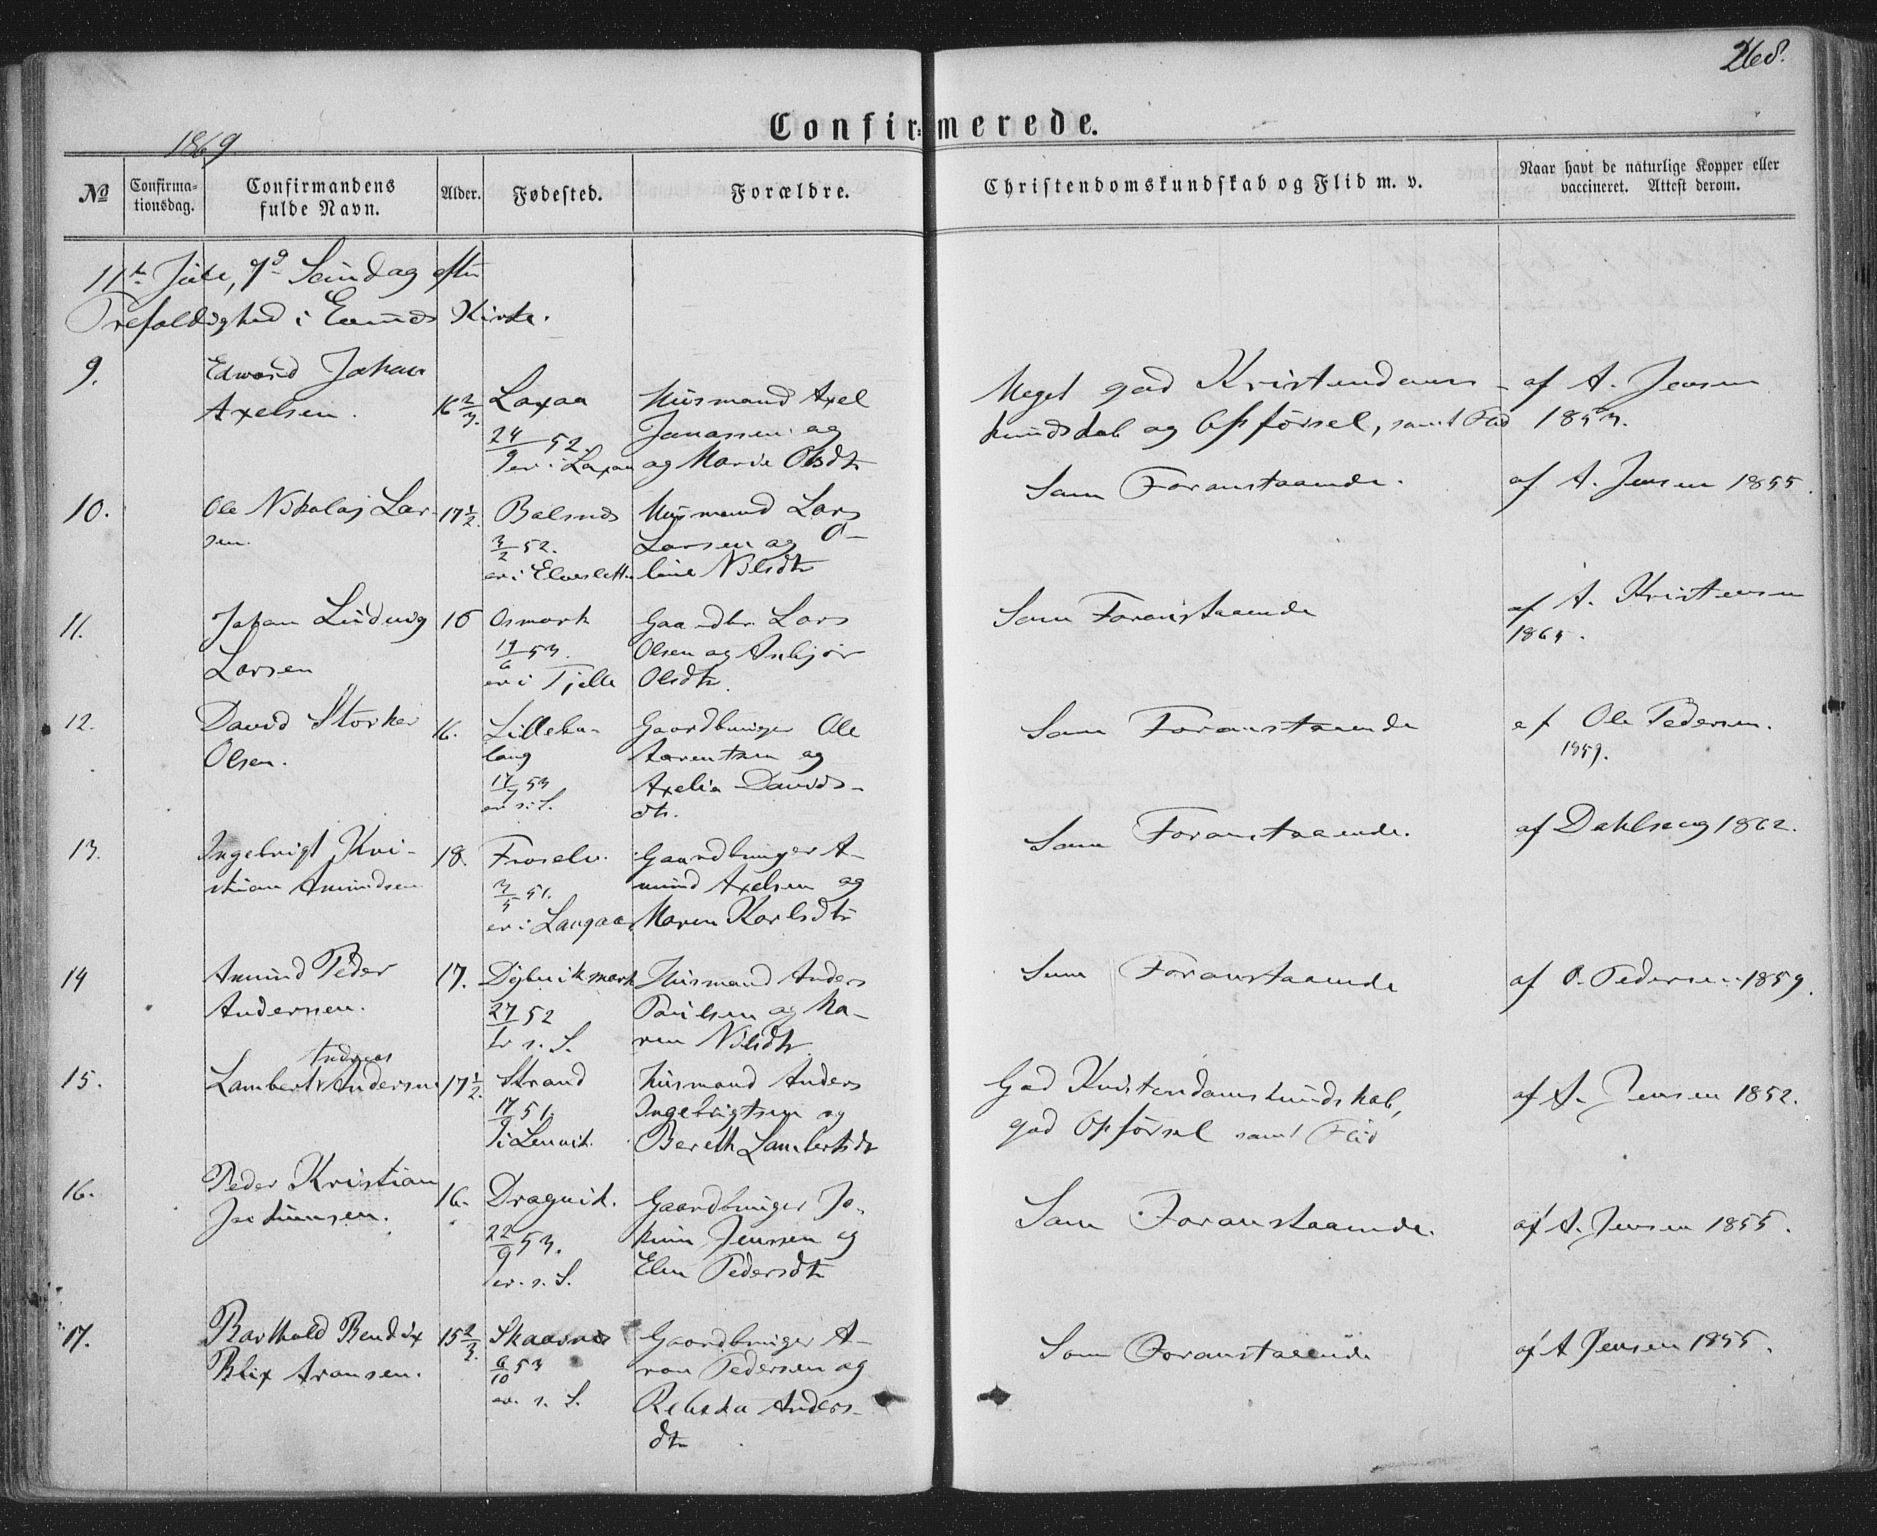 268.
Confirmerede.
1869
No
Confirma-
tionsdag.
Confirmandens
fulde Navn.
Alder.
Fødested.
Forældre.
Christendomskundskab og Flid m. v.
Naar havt de naturlige Kopper eller
vaccineret. Attest derom.
11te Juli, 7d Søndag efter
Trefoldighed i Evenes Kirke.
9.
Edward Johan
Axelsen.
16 2/3.
Laxaa
24/9 52.
er i Laxaa
Husmand Axel
Jonassen og
og Marie Olsdtr
Meget god Kristendoms-
kundskab og Opførsel, samt Flid
af A. Jensen
1853.
10.
Ole Nikolaj Lar-
sen.
17 1/2.
Balsnes
3/2 52.
er i Elveslett
Husmand Lars
Larsen og O-
line Nilsdtr
Som Foranstaaende.
af A. Jensen 1855.
11.
Johan Ludvig
Larsen
16
Osmark
19/6 53.
er i Tjelle
Gaardbr. Lars
Olsen og Anbjør
Olsdtr.
Som Foranstaaende
af A. Kristensen
1865.
12.
David Storker
Olsen.
16.
Lillebu-
lang
17/7 53
er s. S.
Gaardbruger Ole
Arentsen og
Axelia Davids-
dtr.
Som Foranstaaende
af Ole Pedersen.
1859.
13.
Ingebrigt Kri-
stian Amundsen
18.
Froselv.
3/5 51.
er i Langaas
Gaardbruger A-
mund Axelsen og
Maren Karlsdtr
Som Foranstaaende.
af Dahlseng 1862.
14
Amund Peder
Andersen.
17.
Dybvikmark
27/ 52
er s. S.
Husmand Anders
Poulsen og Ma-
ren Nilsdtr
Som Foranstaaende
af O. Pedersen 1859.
15.
Andreas
Lambert Andersen
17 1/2.
Strand
17/9 51.
i Lenvik.
Husmand Anders
Ingebrigtsen og
Bereth Lambertsdtr
God Kristendomskundskab,
god Opførsel samt Flid
af A. Jensen 1852.
16.
Peder Kristian
Jochumsen.
16.
Dragvik.
22/9 53.
er s. S.
Gaardbruger Jo-
kum Jenssen og
Elen Pedersdtr
Som Foranstaaende.
af A. Jensen 1855.
17.
Barthold Bendix
Blix Aronsen.
15 2/3.
Skaarnes
6/10 53
er s. S.
Gaardbruger A-
ron Pedersen og
Rebekka Anders-
dtr
Som Foranstaaende
af A Jensen 1855.